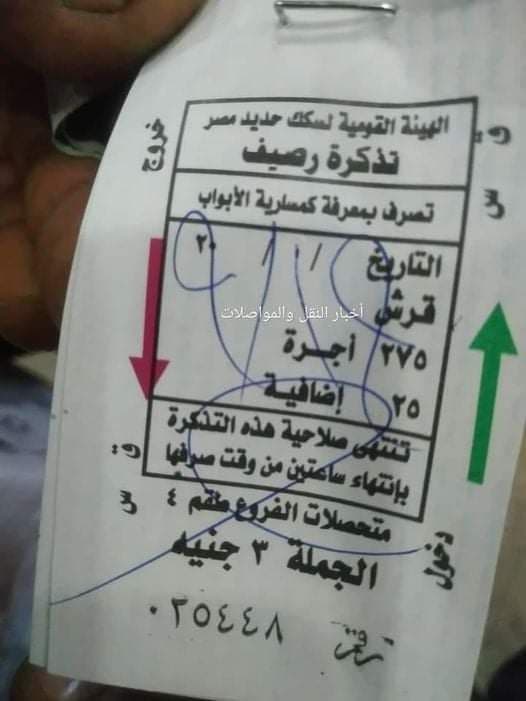 الهيئة القومية لسكك حديد مصر
تذكرة رصيف
تصرف بمعرفة كمسارية الأبواب
التاريخ / / ٢٠
قرش
٢٧٥ أجرة
٢٥ إضافية
تنتهى صلاحية هذه التذكرة
بإنتهاء ساعتين من وقت صرفها
متحصلات الفروع طقم ٤
الجملة ٣ جنيه
رقم ٠٢٥٤٤٨
خروج
ق س
ق س
دخول
أخبار النقل والمواصلات